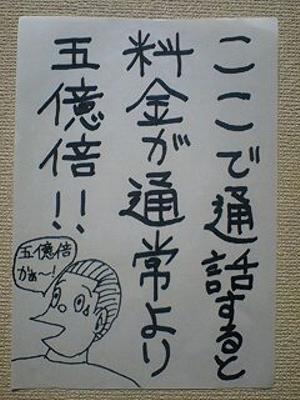 ここで通話すると
料金が通常より
五億倍!!
五億倍
かぁ〜!